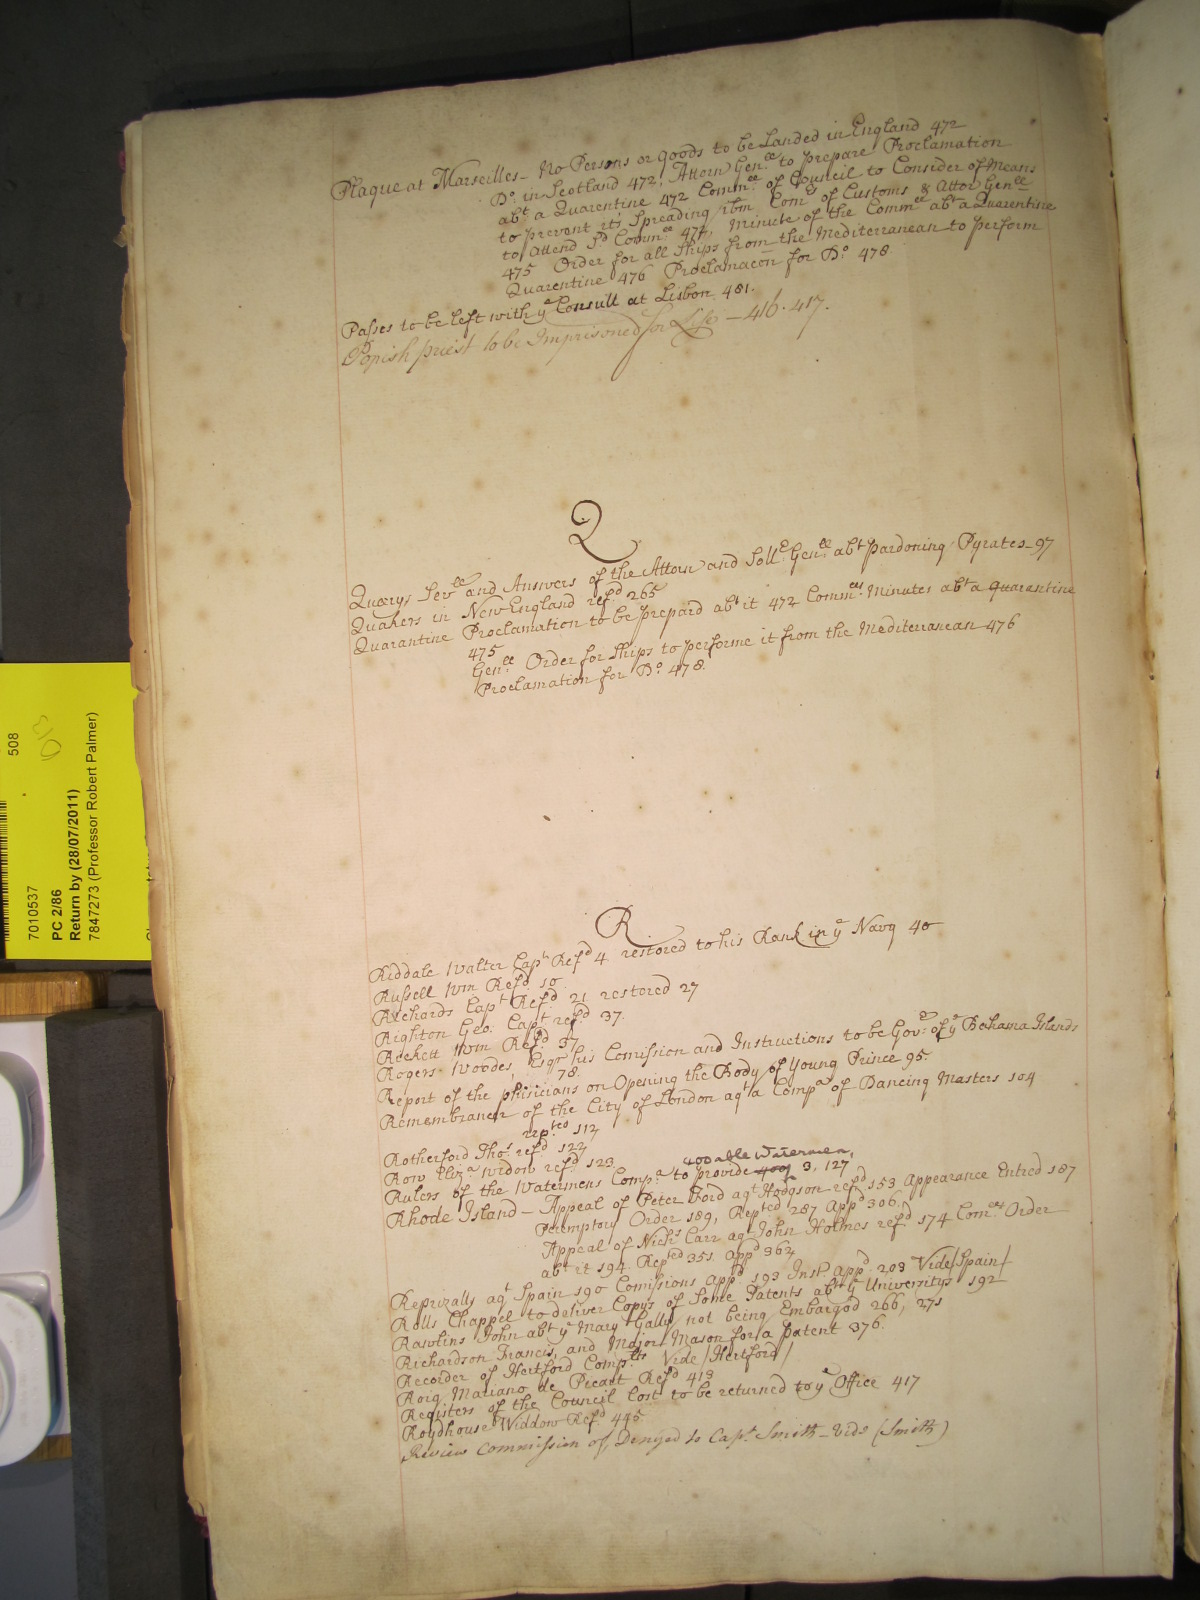 Plague at Marseilles - No Persons or goods to be Landed in England 472
Do. in Scotland 472, Attorn Genll to prepare Proclamation
abt a Quarentine 472 Commee of Council to Consider of Means
to prevent it's Spreading ibm Coms of Customs & Attor Genll
to attend sd Commee 474, Minute of the Commee abt a Quarentine
475 Order for all Ships from the Mediterranean to perform
Quarentine 476 Proclamacon for Do. 478
Passes to be left with ye Consull at Lisbon 481.
Popish priest to be Imprisoned for Life - 416. 417.
Q
Quæry, Sevll and Answers of the Attorn and Solle Genll abt pardoning Pyrates - 97
Quakers in New England refd 265
Quarantine Proclamation to be prepard abt it 472 Commees Minutes abt a Quarantine
475
Genll Order for Ships to performe it from the Mediterranean 476
Proclamation for Do. 478.
R
Riddale Walter Capt Refd 4 restored to his Rank in ye Navy 40
Russell Wm Refd 10
Richards Capt Refd 21 restored 27
Righton Geo. Capt refd 37.
Rickett Wm Refd 37
Rogers Woodes, Esqr his Comission and Instructions to be Govr of ye Bahama Islands
78.
Report of the phisicians on Opening the Body of Young Prince 95.
Remembrancer of the City of London agt a Compa of Dancing Masters 104
repted 112
Rotherford Thos refd 122
Row Eliza Widow refd 123
400 able Watermen,
Rulers of the Watermens Compa to provide 400 3, 127
Rhode Island - Appeal of Peter Ford agt Hodgson refd 153 Appearance Entred 187
Peremptory Order 189, Repted 287 Appd 306.
Appeal of Nichs Carr agt John Holmes refd 174 Comees Order
abt it 194 Repted 351 appd 362
Reprizalls agt Spain 190 Comissions appd 193 Inst appd 203 Vide/Spain/
Rolls Chappel to deliver Copys of Some Patents abt ye Universitys 192
Rawlins John abt ye Mary Gally not being Embargod 266, 271
Richardson Francis, and Major Mason for a patent 376.
Recorder of Hertford Complts Vide /Hertford/
Roig Mariano de Picart Refd 413
Registers of the Council Lost to be returned to ye Office 417
Roydhouse Widdow Refd 445
Review Commission of, Denyed to Capt. Smith - Vide (Smith)
508
7010537
PC 2/86
Return by (28/07/2011)
7847273 (Professor Robert Palmer)